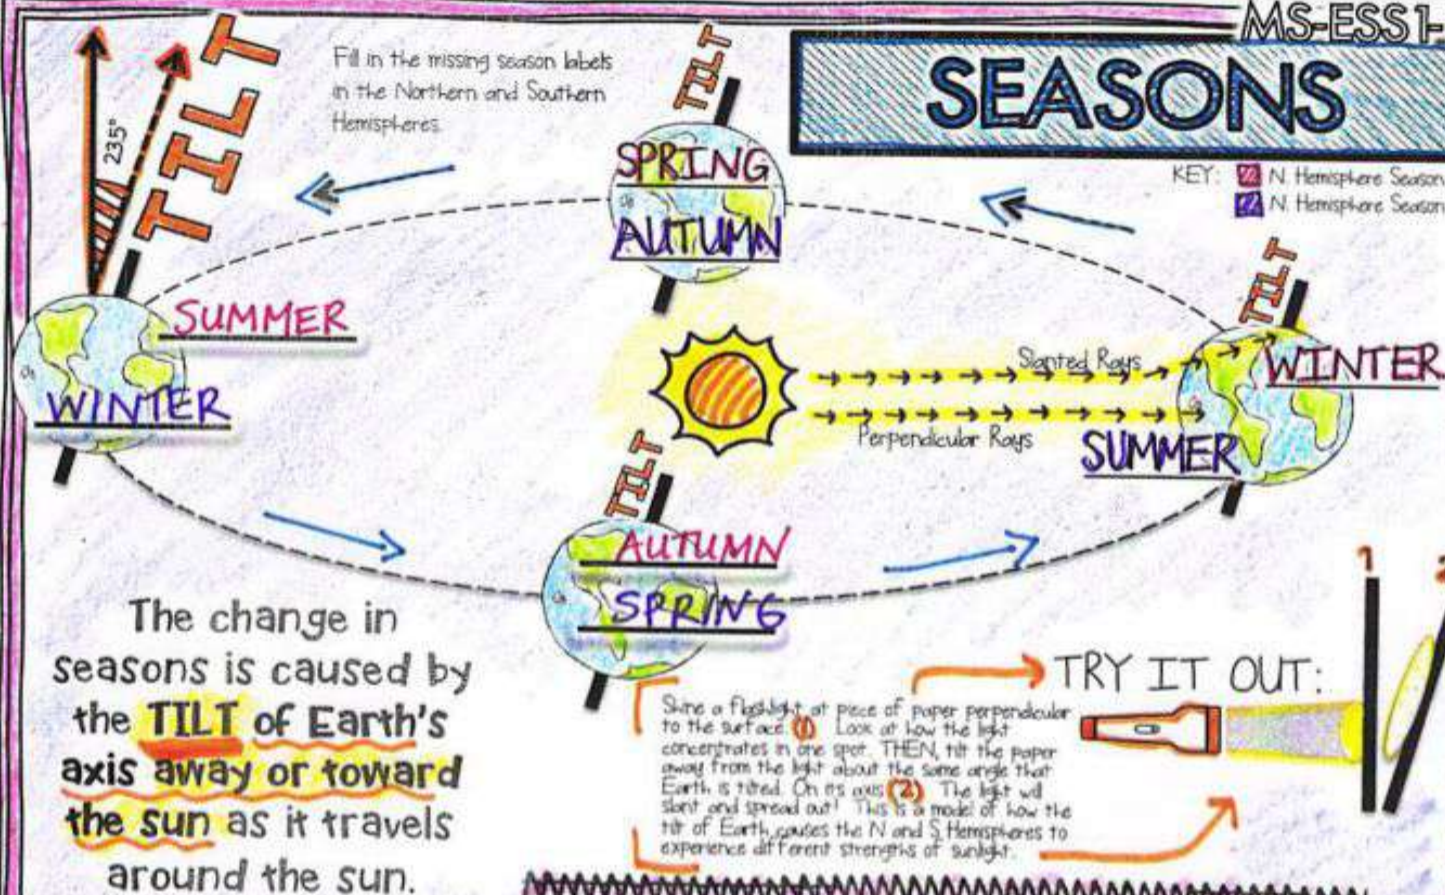 MS-ESS1-
SEASONS
KEY:
N. Hemisphere Season
N. Hemisphere Season
Fill in the missing season labels
in the Northern and Southern
Hemispheres.
23.5°
TILT
TILT
TILT
TILT
SPRING
AUTUMN
SUMMER
WINTER
WINTER
SUMMER
Slanted Rays
Perpendicular Rays
AUTUMN
SPRING
The change in
seasons is caused by
the TILT of Earth's
axis away or toward
the sun as it travels
around the sun.
TRY IT OUT:
1
Shine a flashlight at piece of paper perpendicular
to the surface (1). Look at how the light
concentrates in one spot. THEN, tilt the paper
away from the light about the same angle that
Earth is tilted. On its axis (2). The light will
slant and spread out! This is a model of how the
tilt of Earth causes the N and S Hemispheres to
experience different strengths of sunlight.